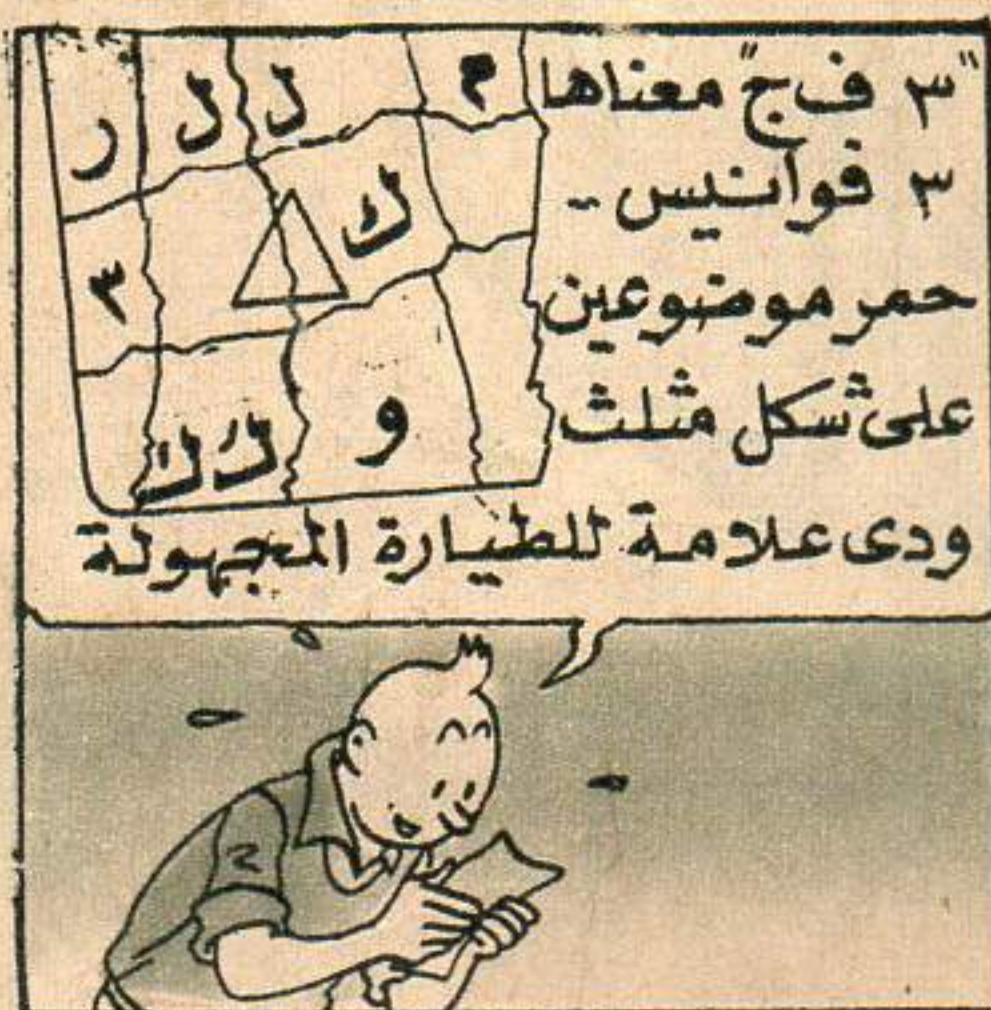 "٣ ف ج" معناها
٣ فوانيس --
حمر موضوعين
على شكل مثلث
ودى علامة للطيارة المجهولة
م د ل ر
ك
٣
و ك ك